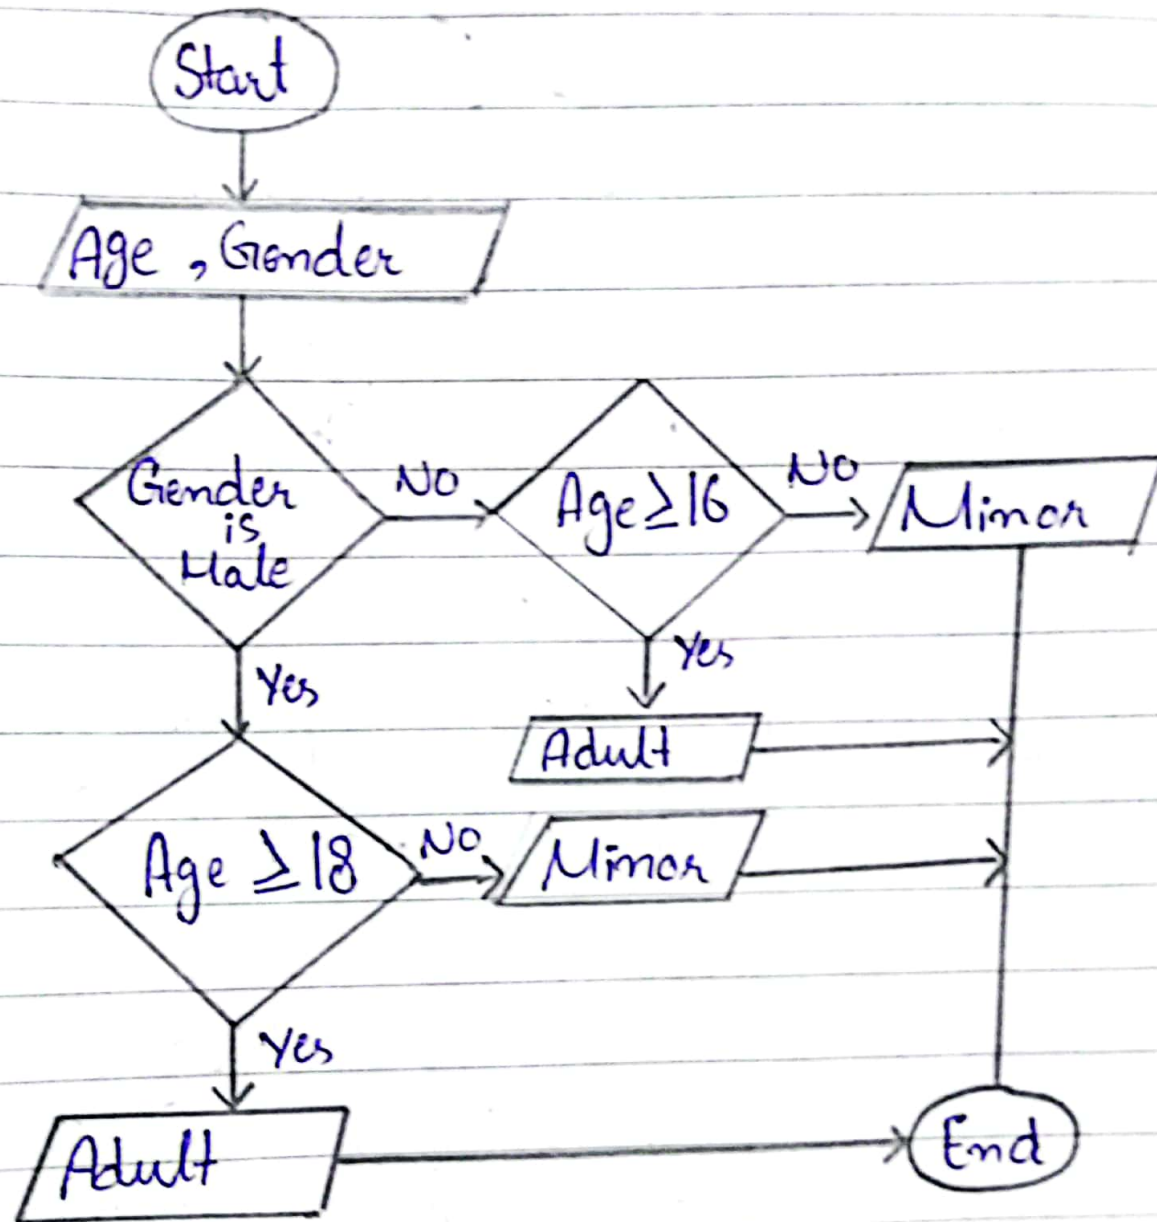 Start
Age , Gender
Gender
is
Male
NO
Age ≥ 16
NO
Minor
Yes
Yes
Adult
Age ≥ 18
NO
Minor
Yes
Adult
End